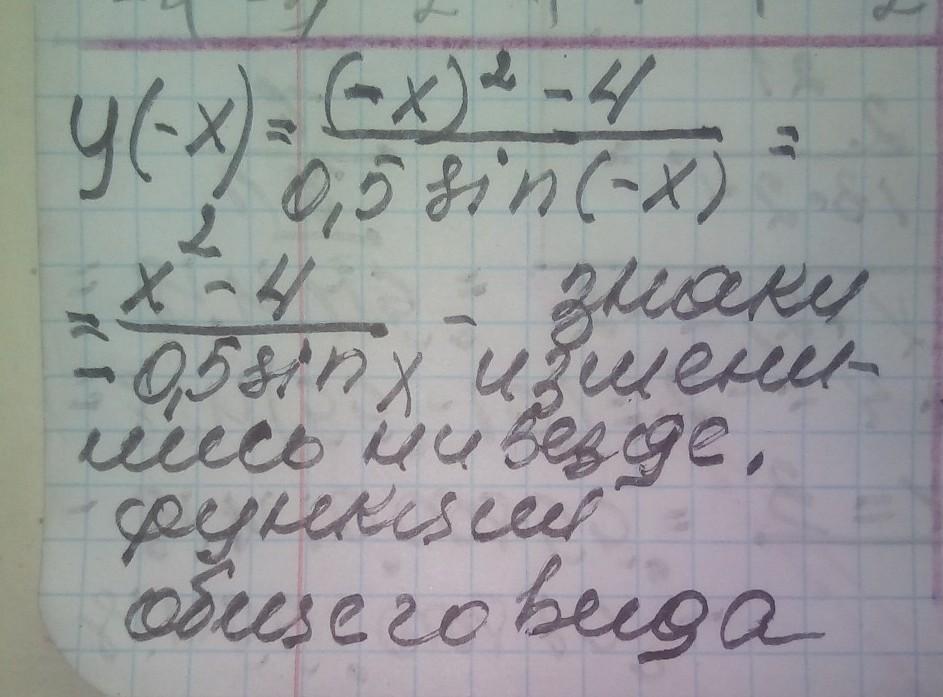 y(-x) = \frac{(-x)^2 - 4}{0,5 sin(-x)} =
= \frac{x^2 - 4}{-0,5 sin x} - знаки
измени-
лись ни везде.
функции
общего вида